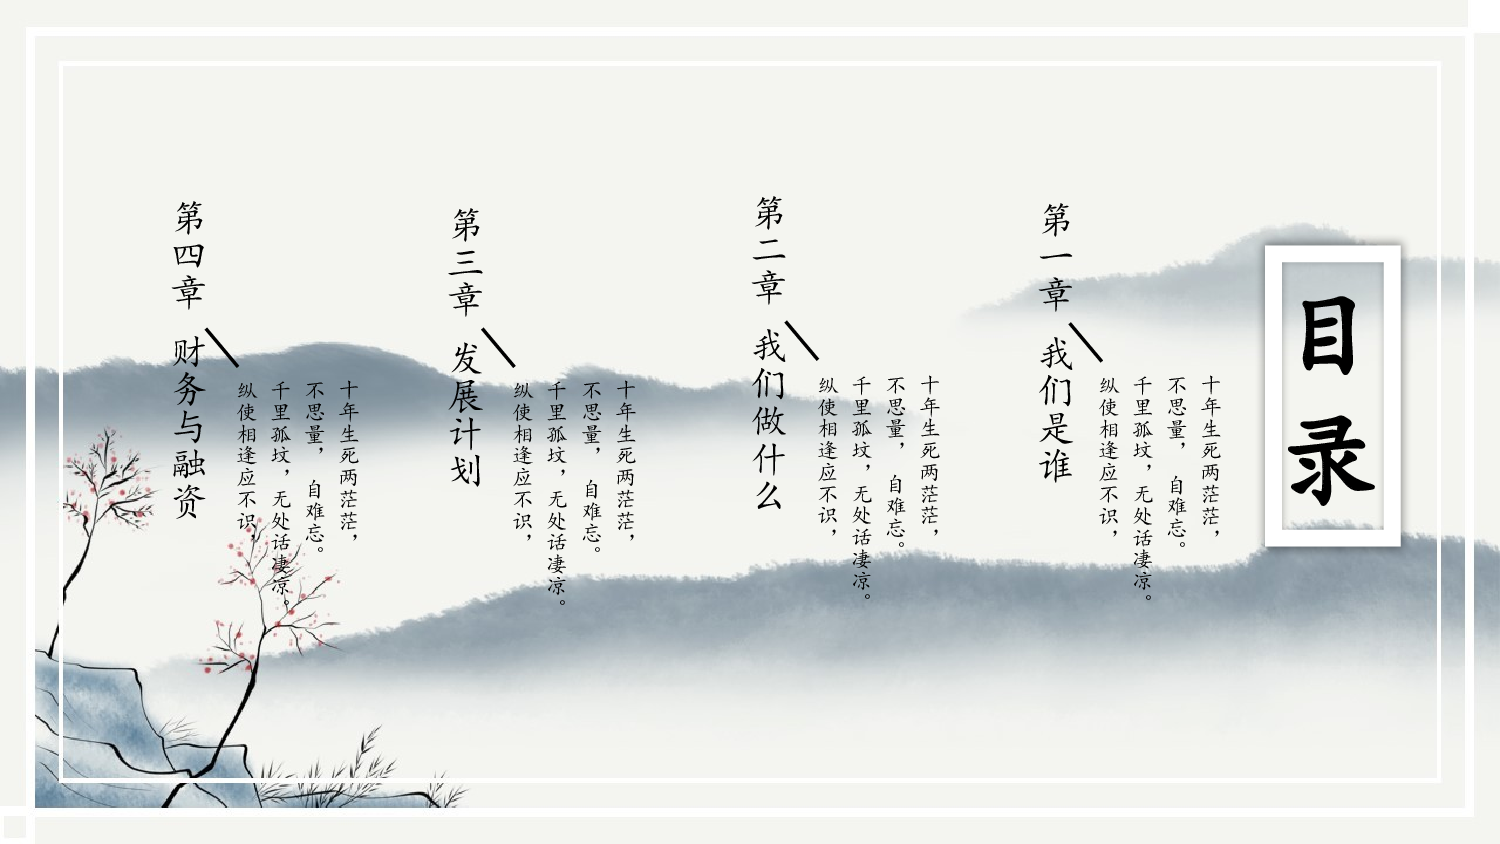 目录
第一章 我们是谁
十年生死两茫茫，
不思量， 自难忘。
千里孤坟，无处话凄凉。
纵使相逢应不识，
第二章 我们做什么
十年生死两茫茫，
不思量， 自难忘。
千里孤坟，无处话凄凉。
纵使相逢应不识，
第三章 发展计划
十年生死两茫茫，
不思量， 自难忘。
千里孤坟，无处话凄凉。
纵使相逢应不识，
第四章 财务与融资
十年生死两茫茫，
不思量， 自难忘。
千里孤坟，无处话凄凉。
纵使相逢应不识，